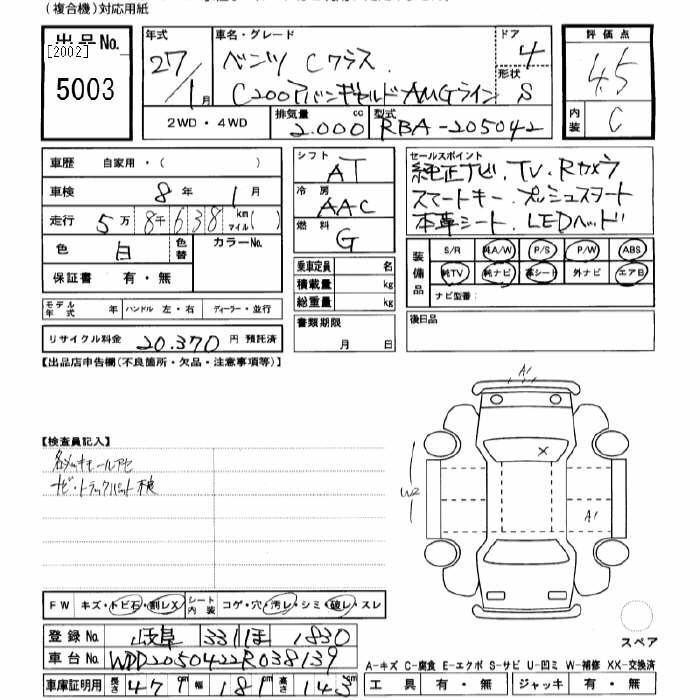 (複合機)対応用紙
出品No.
[2002]
5003
年式
27/1月
車名・グレード
ベンツ Cクラス
C200アバンギャルドAMGライン
ドア
4
形状
S
2WD・4WD
排気量 2.000 cc
型式 RBA-205042
評価点
4.5
内装
C
車歴 自家用・( )
車検 8年 1月
走行 5万8千638 km マイル( )
色 白 色替 カラーNo.
保証書 有・無
モデル年式 年 ハンドル 左・右 ディーラー・並行
リサイクル料金 20.370 円 預託済
シフト AT
冷房 AAC
燃料 G
乗車定員 名
積載量 kg
総重量 kg
書類期限
月 日
セールスポイント
純正ナビ.TV.Rカメラ
スマートキー.プッシュスタート
本革シート.LEDヘッド
装備品
S/R 純A/W P/S P/W ABS
純TV 純ナビ 革シート 外ナビ エアB
ナビ型番:
後日品
【出品店申告欄(不良箇所・欠品・注意事項等)】
【検査員記入】
ナビ・トラックパット
A1
X
W2
A1
FW キズ・トビ石・割レX シート内装 コゲ・穴・汚レ・シミ・破レ・スレ
登録No. 岐阜 331 ほ 1830
車台No. WDD2050422R038139
車庫証明用 長さ 471 幅 181 高さ 143
スペア
A-キズ C-腐食 E-エクボ S-サビ U-凹ミ W-補修 XX-交換済
工具 有・無 ジャッキ 有・無